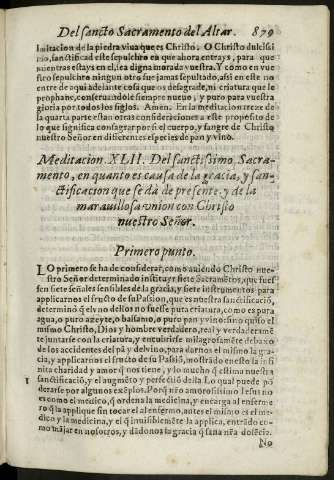 Del sancto Sacramento del Altar. 879
imitacion de la piedra viua que es Christo. O Christo dulcissi
mo, sanctificad este sepulchro en que ahora entrays, para que
mientras estays en el, sea digna morada vuestra. Y como en vue
stro sepulchro ningun otro fue jamas sepultado, assi en este no
entre de aqui adelante cosa que os desagrade, ni criatura que le
prophane, conseruandole siempre nueuo, y puro para vuestra
gloria por todos los siglos. Amen. En la meditacion treze de
la quarta parte estan otras consideraciones a este proposito de
lo que significa consagrar por si el cuerpo, y sangre de Christo
nuestro Señor en diferentes especies de pan y vino.
Meditacion. XLII. Del sanctissimo Sacra-
mento, en quanto es causa de la gracia, y san-
ctificacion que se dà de presente, y de la
marauillosa vnion con Christo
nuestro Señor.
Primero punto.
LO primero se ha de considerar, como auiendo Christo nue-
stro Señor determinado instituyr siete Sacramẽtos, que fues
sen siete señales sensibles de la gracia, y siete instrumentos para
applicarnos el fructo de su Passion, que es nuestra sanctificació,
determinò q̃ el vno dellos no fuesse pura criatura, como es pura
agua, o puro azeyte, o balsamo, o puro pan y vino sino quiso el
mismo Christo, Dios y hombre verdadero, real y verdaderamẽ
te juntarse con la criatura, y encubrirse milagrosamẽte debaxo
de los accidentes del pã y del vino, para darnos el mismo la gra-
cia, y applicarnos el fructo de su Passiõ, mostrãdo en esto la infi
nita charidad y amor q̃ nos tiene, y lo mucho q̃ estima nuestra
1 sanctificació, y el augmẽto y perfeció della. Lo qual puede pó
derarse por algunos exẽplos. Porq̃ nr̃o amorosissimo Iesus no
es como el medico, q̃ ordena la medicina, y encarga al enferme
ro q̃ la applique sin tocar el al enfermo, antes el mismo es el me-
dico y la medicina, y el q̃ inuisiblemẽte la applica, entrãdo co-
mo mãjar en nosotros, y dãdonos la gracia q̃ sana nr̃a dolẽcia.
No